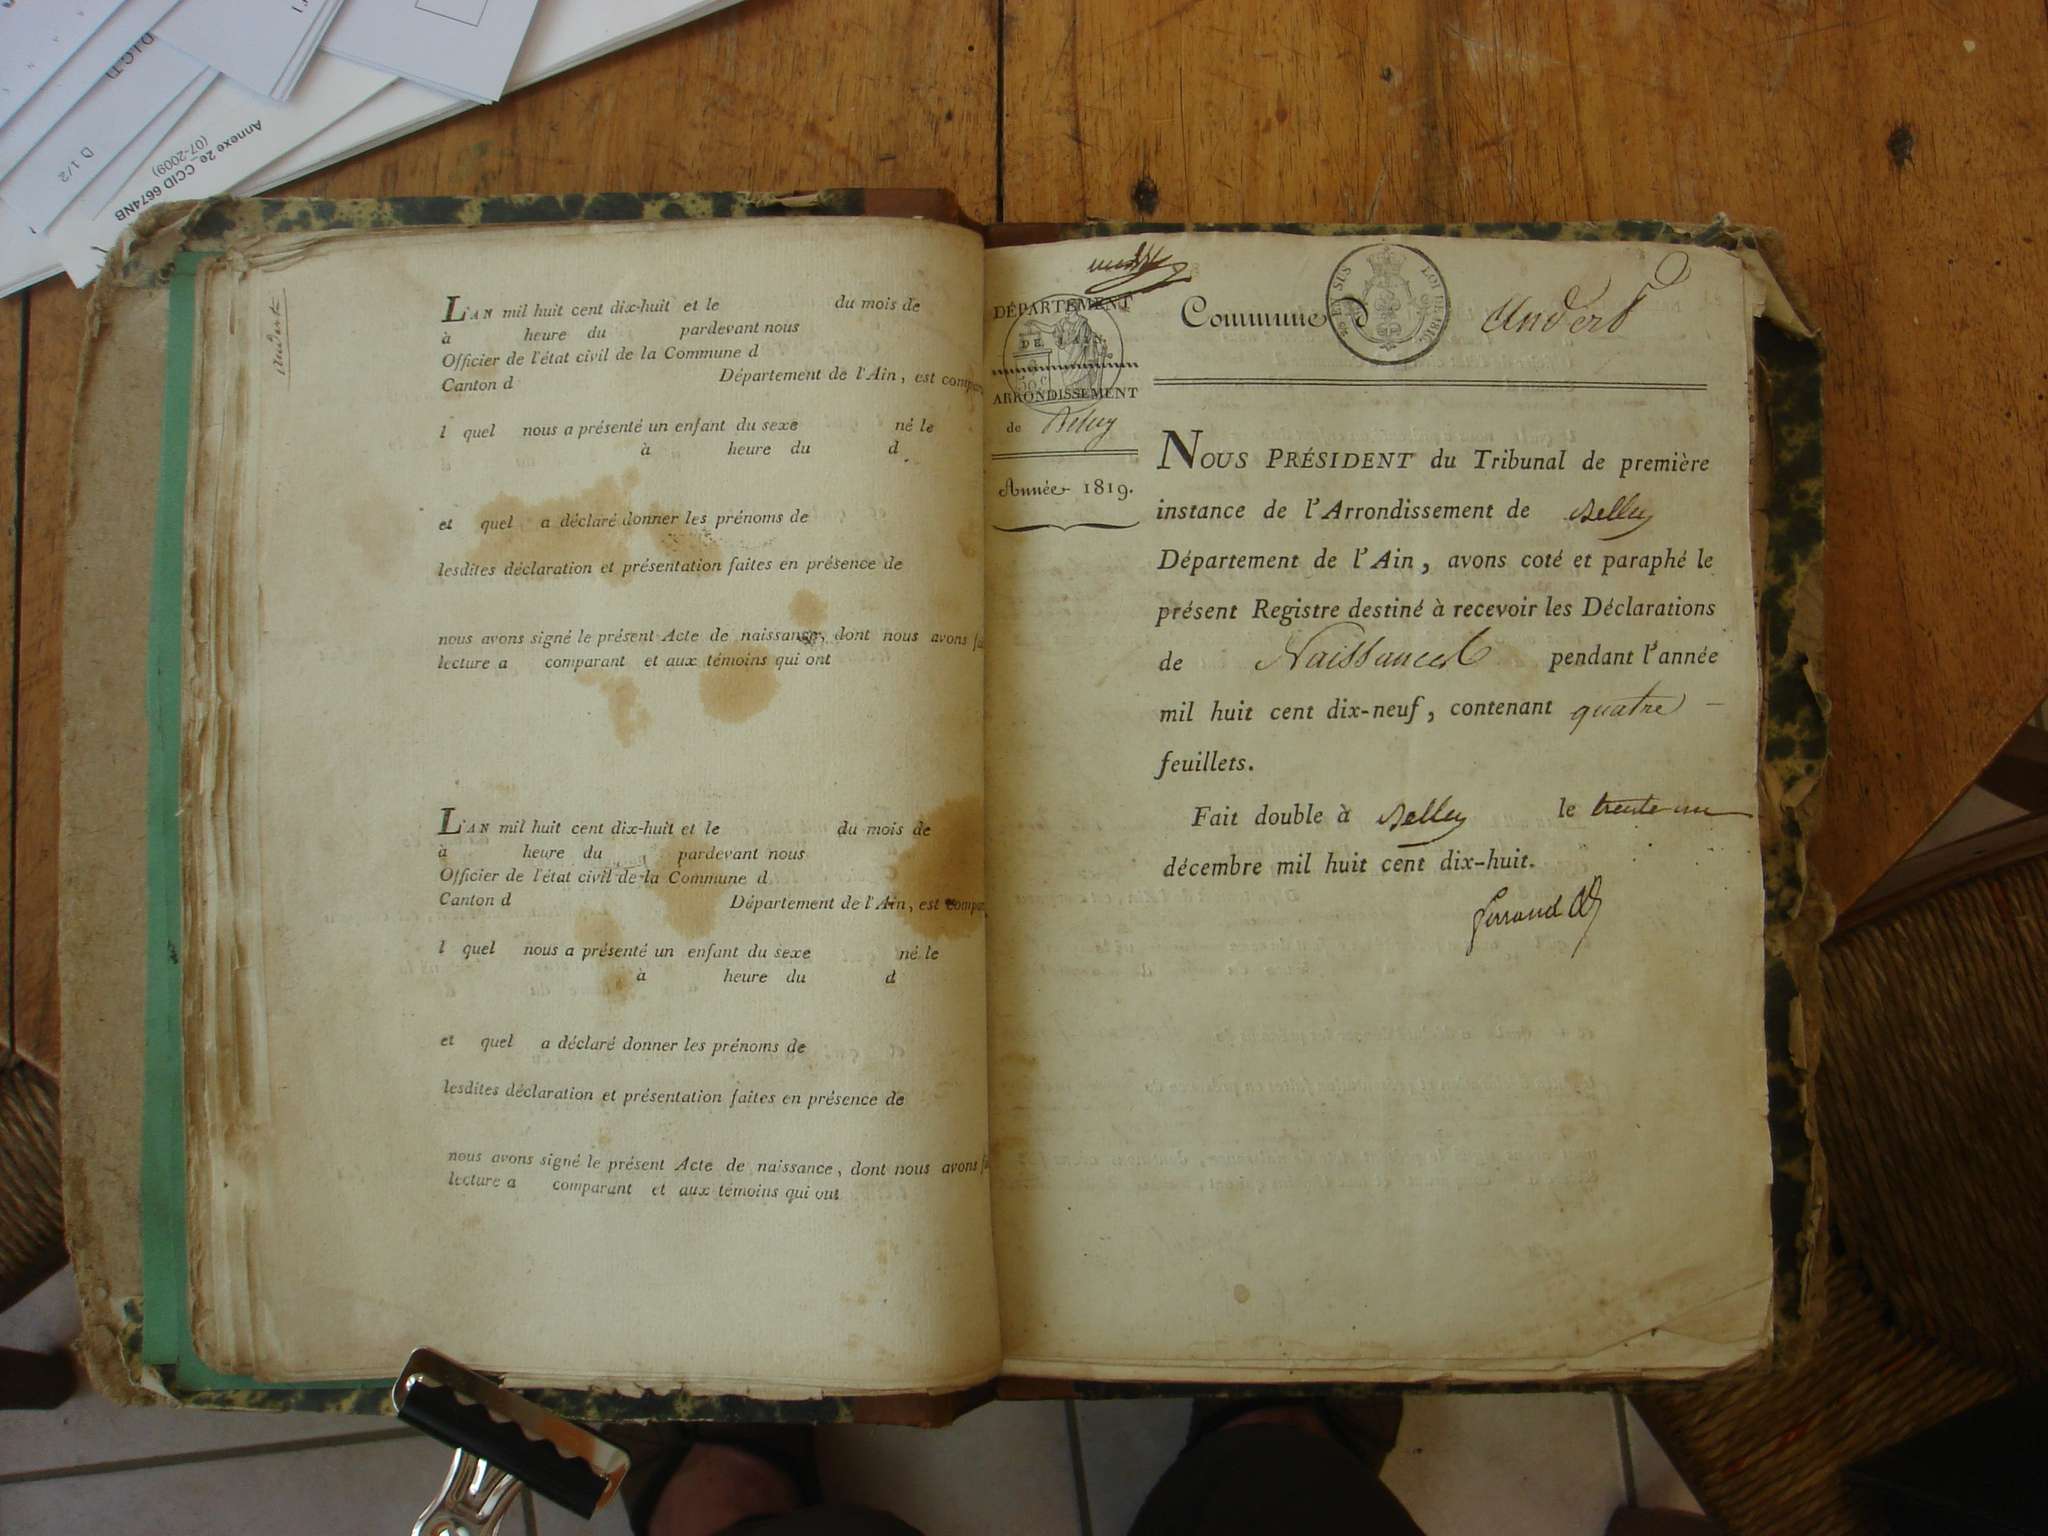 D.I.C.T.I
D 1/2
Annexe 2e_CCID 6674NB
(07-2009)
Andert
L'AN mil huit cent dix-huit et le du mois de
à heure du pardevant nous
Officier de l'état civil de la Commune d
Canton d Département de l'Ain, est compar
l quel nous a présenté un enfant du sexe né le
à heure du d
et quel a déclaré donner les prénoms de
lesdites déclaration et présentation faites en présence de
nous avons signé le présent Acte de naissance, dont nous avons fa
lecture a comparant et aux témoins qui ont
L'AN mil huit cent dix-huit et le du mois de
à heure du pardevant nous
Officier de l'état civil de la Commune d
Canton d Département de l'Ain, est compar
l quel nous a présenté un enfant du sexe né le
à heure du d
et quel a déclaré donner les prénoms de
lesdites déclaration et présentation faites en présence de
nous avons signé le présent Acte de naissance, dont nous avons fa
lecture a comparant et aux témoins qui ont
DÉPARTEMENT
DE L'AIN
ARRONDISSEMENT
de Belley
Année 1819.
Commune d Andert
NOUS PRÉSIDENT du Tribunal de première
instance de l'Arrondissement de Belley
Département de l'Ain, avons coté et paraphé le
présent Registre destiné à recevoir les Déclarations
de Naissances pendant l'année
mil huit cent dix-neuf, contenant quatre –
feuillets.
Fait double à Belley le trente un
décembre mil huit cent dix-huit.